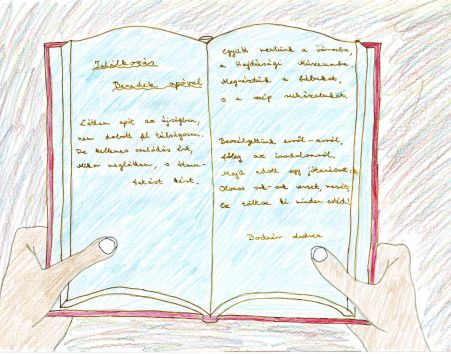 Találkozás
Benedek apóval
Láttam apót az újságban,
nem hatott
De kellemes csalódás ért,
Mikor megláttam, s
kért.
együtt mentünk a városba,
a Hajdúsági Múzeumba.
Megnéztük a
s a szép ruházatukat.
Beszélgettünk erről-arról,
főleg az irodalomról.
Majd adott egy jótanácsot:
Olvass sok-sok verset, mesét,
ez töltse ki minden estéd!
Bodnár Andrea